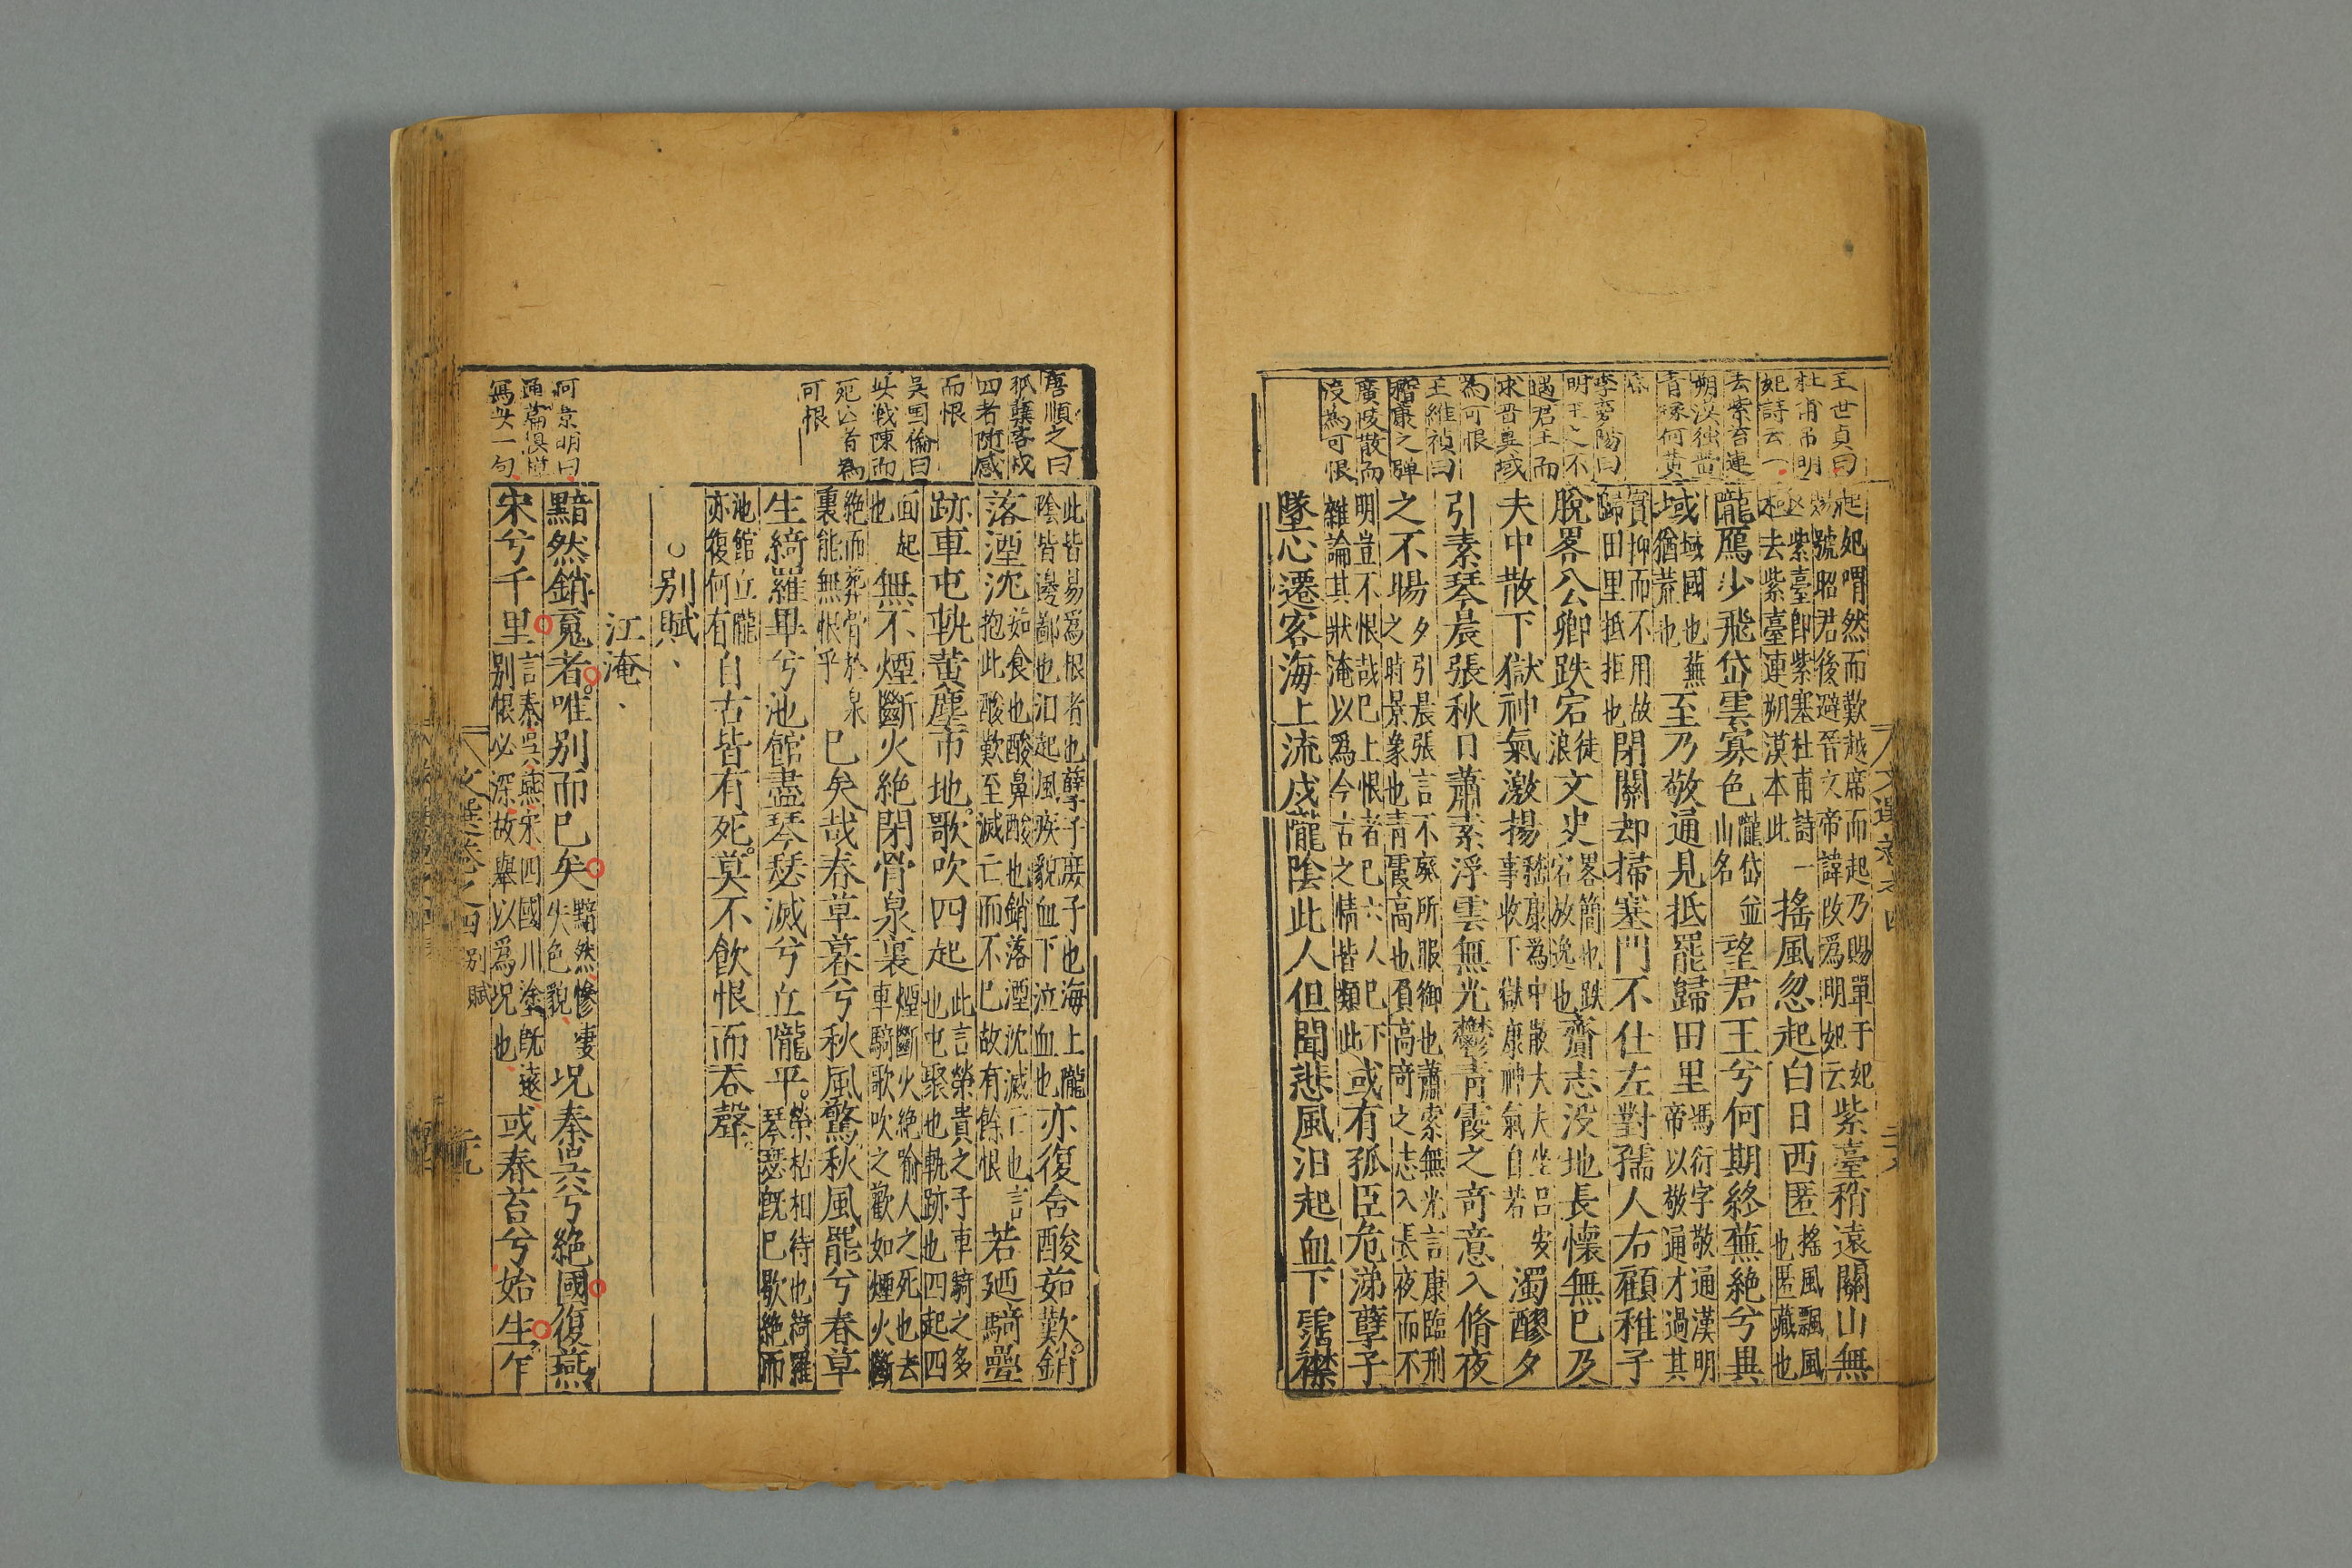 王世貞曰
杜甫吊明
妃詩云一
去紫苔連
朔漠獨留
青塚何黃
昏
李夢陽曰
明王之不
遇君王而
求昏異域
為可恨
王維禎曰
嵇康之彈
廣陵散而
没為可恨
起妃喟然而歎越席而起乃賜單于妃
賜號昭君後避晉文帝諱改爲明妃云
紫臺稍遠關山無
極
紫臺即紫塞杜甫詩一
去紫臺連朔漠本此
搖風忽起白日西匿
搖風飄風
也匿藏也
隴鴈少飛岱雲寡色
隴岱並
山名
望君王兮何期終蕪絶兮異
域
域國也蕪
猶荒也
至乃敬通見抵罷歸田里
馮衍字敬通漢明
帝以敬通才過其
實抑而不用故
歸田里抵拒也
閉關却掃塞門不仕左對孺人右顧稚子
脫畧公卿跌宕
徒
浪
文史
畧簡也跌
宕放逸也
齎志没地長懷無已及
夫中散下獄神氣激揚
嵇康為中散大夫坐呂安
事收下獄康神氣自若
濁醪夕
引素琴晨張秋日蕭索浮雲無光鬱青霞之奇意入脩夜
之不暘
夕引晨張言不廢所服御也蕭索無光言康臨刑
之時景象也青霞高也負高奇之志入長夜而不
明豈不恨哉已上恨者已六人已下
雜論其狀淹以爲今古之情皆類此
或有孤臣危涕孽子
墜心遷客海上流戍隴陰此人但聞悲風汩起血下霑襟
唐順之曰
孤孽客戍
四者随感
而恨
吳国倫曰
此戰陳而
死亾者為
可恨
何景明曰
通篇俱從
爲此一句
此皆易爲恨者也孽子庻子也海上隴
陰皆邊鄙也汩起風疾貌血下泣血也
亦復含酸茹歎銷
落湮沈
茹食也酸鼻酸也銷落湮沈滅亡也言
抱此酸歎至滅亡而不已故有餘恨
若廼騎疊
跡車屯軌黃塵市地歌吹四起
此言榮貴之子車騎之多
也屯聚也軌跡也四起四
面起
也
無不煙斷火絶閉骨泉裏
煙斷火絶喻人之死也去
車騎歌吹之歡如煙火斷
絶而葬骨於泉
裏能無恨乎
已矣哉春草暮兮秋風驚秋風罷兮春草
生綺羅畢兮池館盡琴瑟滅兮丘隴平
榮枯相待也綺羅
琴瑟旣已歇絶而
池館丘隴
亦復何有
自古皆有死莫不飲恨而吞聲
○別賦
江淹
黯然銷䰟者唯別而已矣
黯然慘悽
失色貌
况秦吳兮絶國復燕
宋兮千里
言秦吳燕宋四國川塗旣遠
別恨必深故舉以爲况也
或春苔兮始生乍
文選卷之四
別賦